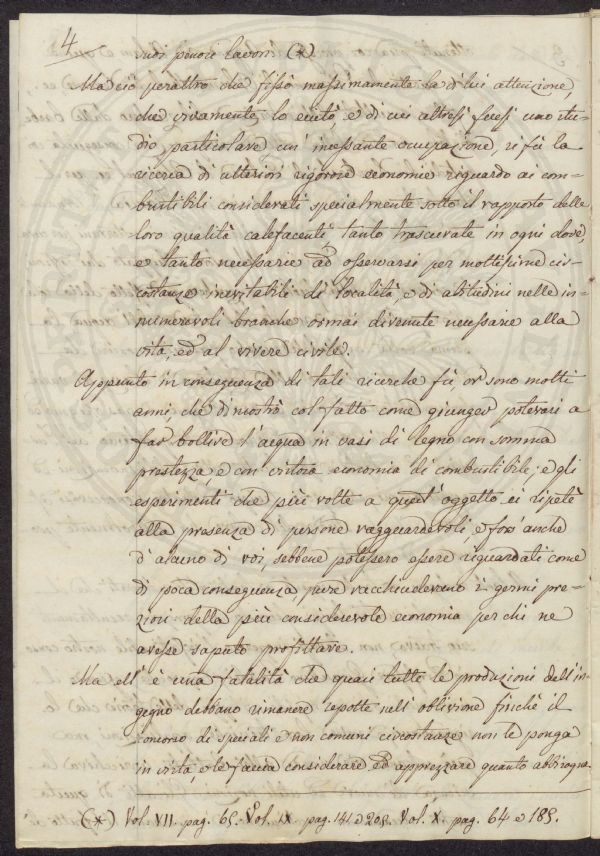 4
suoi penosi lavori (*)
Ma ciò peraltro che fissò massimamente la di lui attenzione,
che vivamente lo eccitò, e di cui altresì fecesi uno stu-
dio particolare, un' incessante occupazione, si fù la
ricerca di ulteriori rigorose economie riguardo ai com-
bustibili considerati specialmente sotto il rapporto delle
loro qualità calefacenti tanto trascurate in ogni dove,
e tanto necessarie ad osservarsi per moltissime cir-
costanze inevitabili di località, e di abitudini nelle in-
numerevoli branche ormai divenute necessarie alla
vita, ed al vivere civile.
Appunto in conseguenza di tali ricerche fù, or sono molti
anni, che dimostrò col fatto come giunger potevasi a
far bollire l'acqua in vasi di legno con somma
prestezza, e con vistosa economia di combustibile; e gli
esperimenti che più volte a quest' oggetto ei ripetè
alla presenza di persone ragguardevoli, e fors' anche
d' alcuno di voi, sebbene potessero essere riguardati come
di poca conseguenza, pure racchiudevano i germi pre-
ziosi della più considerevole economia per chi ne
avesse saputo profittare.
Ma ell' è una fatalità che quasi tutte le produzioni dell' in-
gegno debbano rimanere sepolte nell' oblivione finchè il
concorso di speciali e non comuni circostanze non le ponga
in vista, e le faccia considerare ed apprezzare quanto abbisogna.
(*) Vol. VII. pag. 65. Vol. IX pag. 141 e 208. Vol. X. pag. 64 e 185.